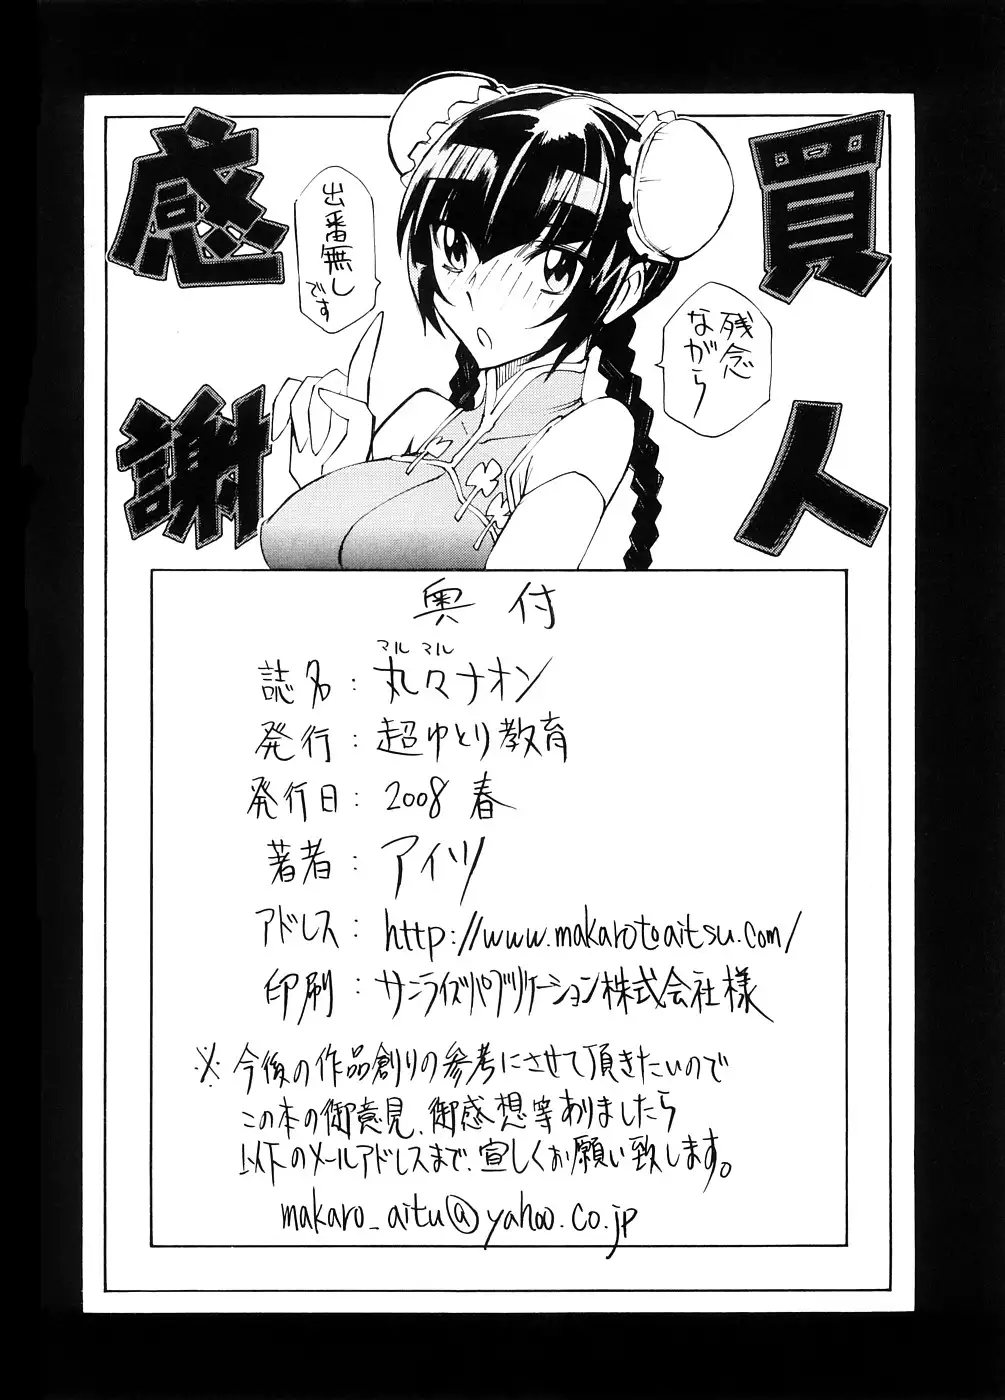 買人
感謝
残念
ながら
出番無し
です
奥付
マル マル
誌名：丸々ナオン
発行：超ゆとり教育
発行日：2008 春
著者：アイツ
アドレス：http://www.makarotoaitsu.com/
印刷：サンライズパブリケーション株式会社様
※今後の作品創りの参考にさせて頂きたいので
この本の御意見、御感想等ありましたら
以下のメールアドレスまで、宜しくお願い致します。
makaro_aitu@yahoo.co.jp